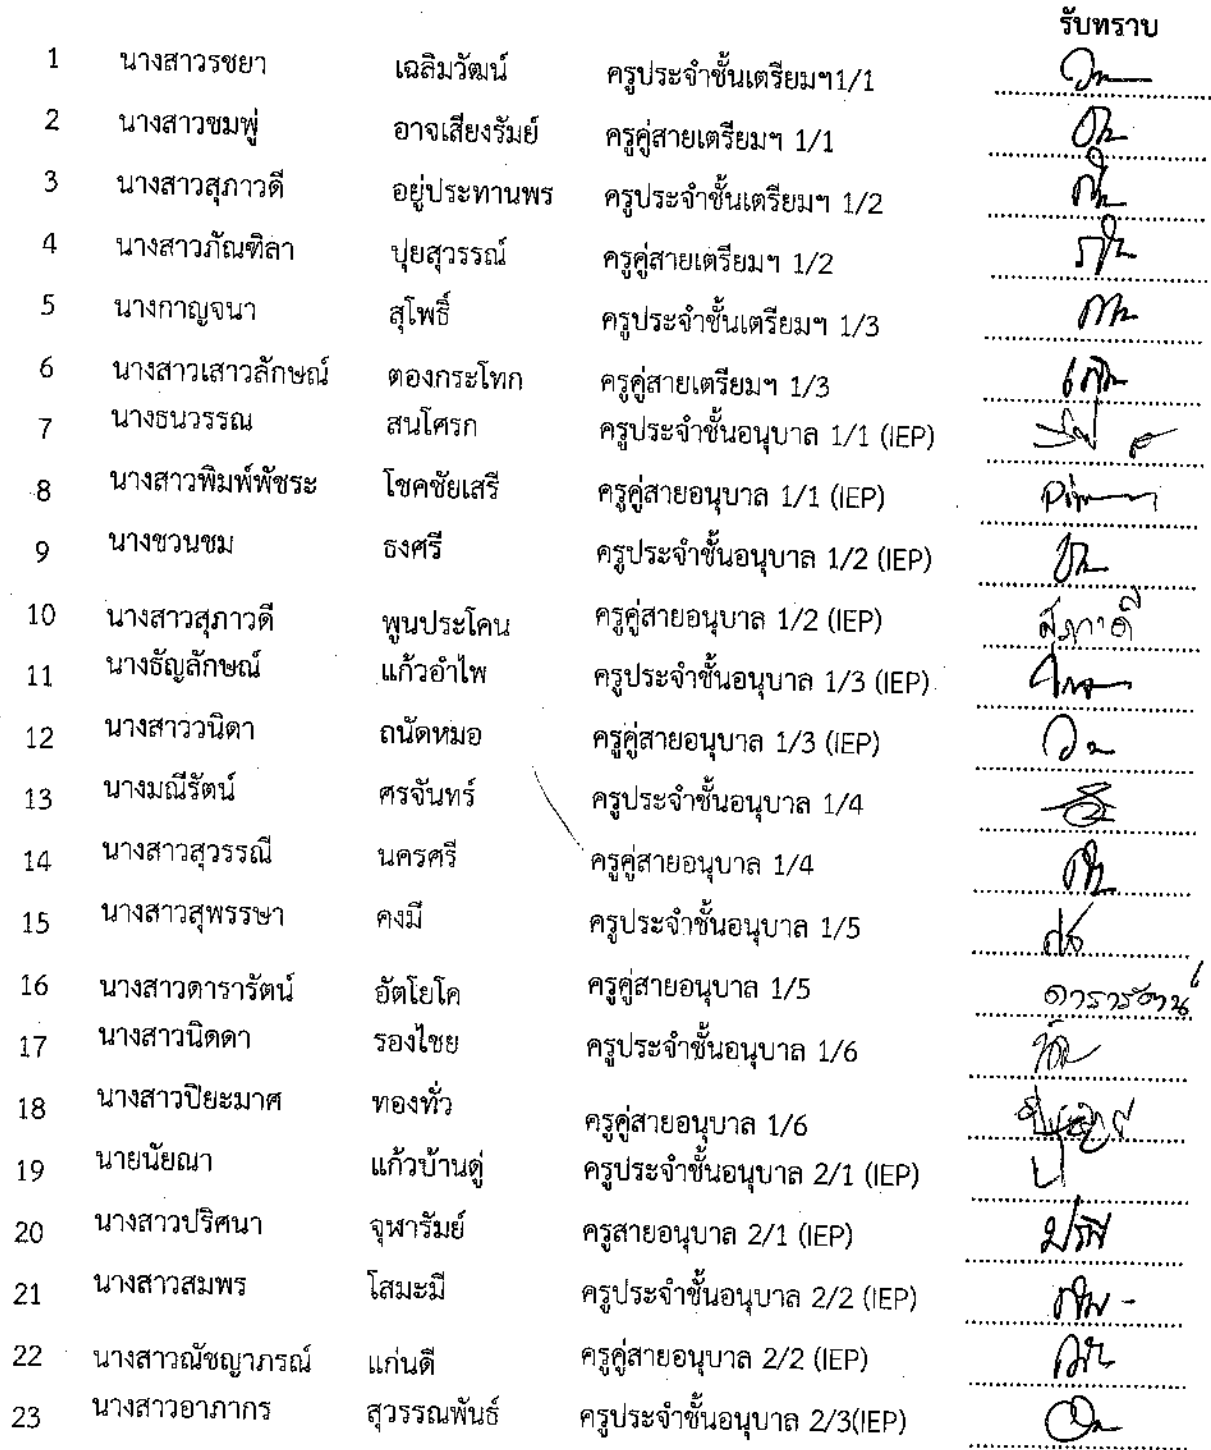 รับทราบ
1 นางสาวรชยา เฉลิมวัฒน์ ครูประจำชั้นเตรียมฯ1/1
2 นางสาวชมพู่ อาจเสียงรัมย์ ครูคู่สายเตรียมฯ 1/1
3 นางสาวสุภาวดี อยู่ประทานพร ครูประจำชั้นเตรียมฯ 1/2
4 นางสาวภัณฑิลา ปุยสุวรรณ์ ครูคู่สายเตรียมฯ 1/2
5 นางกาญจนา สุโพธิ์ ครูประจำชั้นเตรียมฯ 1/3
6 นางสาวเสาวลักษณ์ ตองกระโทก ครูคู่สายเตรียมฯ 1/3
7 นางธนวรรณ สนโศรก ครูประจำชั้นอนุบาล 1/1 (IEP)
8 นางสาวพิมพ์พัชระ โชคชัยเสรี ครูคู่สายอนุบาล 1/1 (IEP)
9 นางชวนชม ธงศรี ครูประจำชั้นอนุบาล 1/2 (IEP)
10 นางสาวสุภาวดี พูนประโคน ครูคู่สายอนุบาล 1/2 (IEP)
11 นางธัญลักษณ์ แก้วอำไพ ครูประจำชั้นอนุบาล 1/3 (IEP)
12 นางสาววนิดา ถนัดหมอ ครูคู่สายอนุบาล 1/3 (IEP)
13 นางมณีรัตน์ ศรจันทร์ ครูประจำชั้นอนุบาล 1/4
14 นางสาวสุวรรณี นครศรี ครูคู่สายอนุบาล 1/4
15 นางสาวสุพรรษา คงมี ครูประจำชั้นอนุบาล 1/5
16 นางสาวดารารัตน์ อัตโยโค ครูคู่สายอนุบาล 1/5 ดารารัตน์
17 นางสาวนิดดา รองไชย ครูประจำชั้นอนุบาล 1/6
18 นางสาวปิยะมาศ ทองทั่ว ครูคู่สายอนุบาล 1/6
19 นายนัยณา แก้วบ้านดู่ ครูประจำชั้นอนุบาล 2/1 (IEP)
20 นางสาวปริศนา จุฬารัมย์ ครูสายอนุบาล 2/1 (IEP)
21 นางสาวสมพร โสมะมี ครูประจำชั้นอนุบาล 2/2 (IEP)
22 นางสาวณัชญาภรณ์ แก่นดี ครูคู่สายอนุบาล 2/2 (IEP)
23 นางสาวอาภากร สุวรรณพันธ์ ครูประจำชั้นอนุบาล 2/3(IEP)